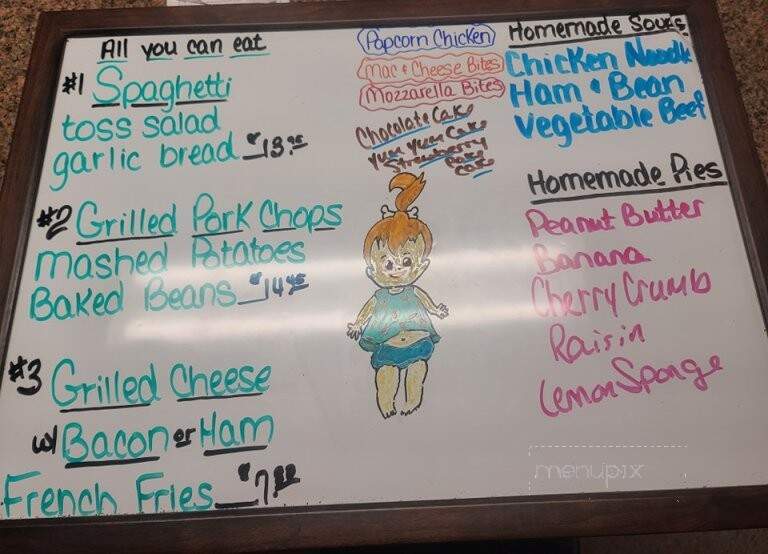 All you can eat
#1 Spaghetti
toss salad
garlic bread
#2 Grilled Pork Chops
mashed Potatoes
Baked Beans
#3 Grilled Cheese
w/ Bacon or Ham
French Fries
Popcorn Chicken
Mac & Cheese Bites
Mozzarella Bites
Chocolate Cake
Yum Yum Cake
Strawberry
Cake
Homemade Soups
Chicken Noodle
Ham & Bean
Vegetable Beef
Homemade Pies
Peanut Butter
Banana
Cherry Crumb
Raisin
Lemon Sponge
menupix